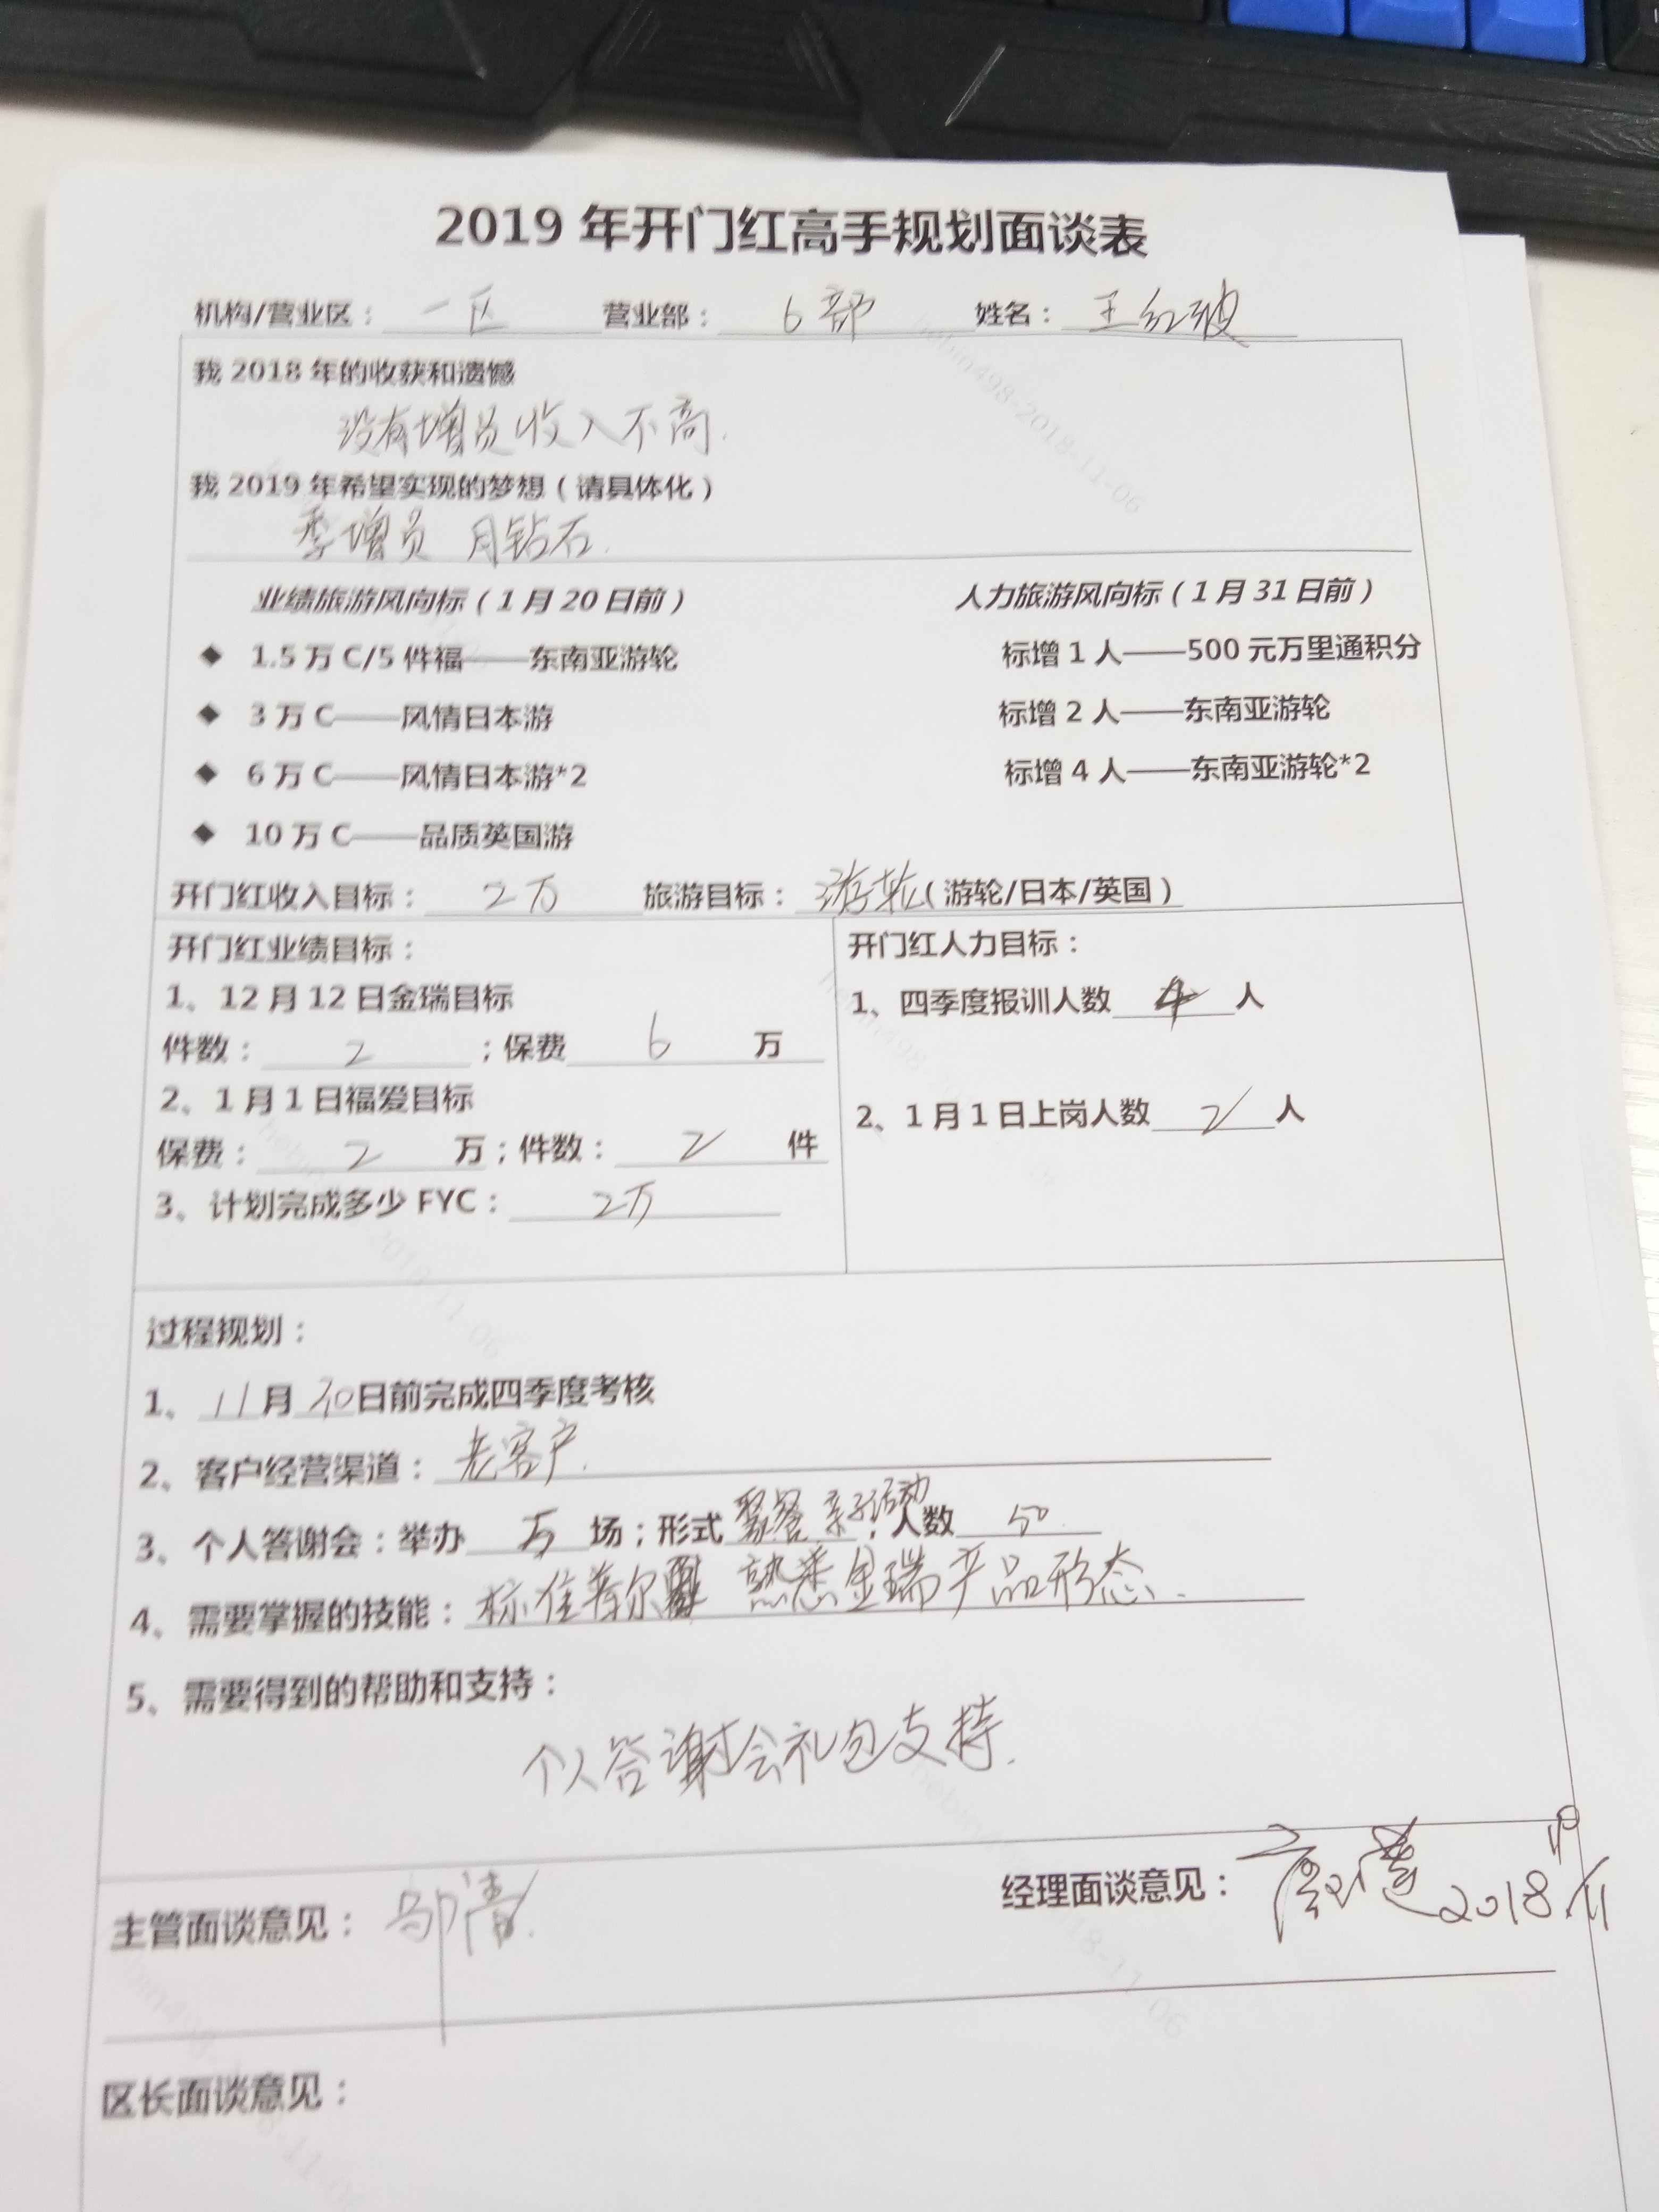 2019 年开门红高手规划面谈表
机构/营业区： 一区 营业部： 6部 姓名： 王红波
我 2018 年的收获和遗憾
没有增员收入不高.
我 2019 年希望实现的梦想（请具体化）
季增员 月钻石.
业绩旅游风向标（1 月 20 日前） 人力旅游风向标（1 月 31 日前）
◆ 1.5 万 C/5 件福——东南亚游轮 标增 1 人——500 元万里通积分
◆ 3 万 C——风情日本游 标增 2 人——东南亚游轮
◆ 6 万 C——风情日本游*2 标增 4 人——东南亚游轮*2
◆ 10 万 C——品质英国游
开门红收入目标： 2万 旅游目标： 游轮（游轮/日本/英国）
开门红业绩目标： 开门红人力目标：
1、12 月 12 日金瑞目标 1、四季度报训人数 4 人
件数： 2 ；保费 6 万
2、1 月 1 日福爱目标 2、1 月 1 日上岗人数 2 人
保费： 2 万；件数： 2 件
3、计划完成多少 FYC： 2万
过程规划：
1、 11月 20日前完成四季度考核
2、客户经营渠道： 老客户.
3、个人答谢会：举办 场；形式 聚餐 亲子活动；人数 50
4、需要掌握的技能： 标准普尔 熟悉金瑞产品形态.
5、需要得到的帮助和支持：
个人答谢会礼包支持.
主管面谈意见： 邹清. 经理面谈意见： 2018
区长面谈意见：
hebin498-2018-11-06